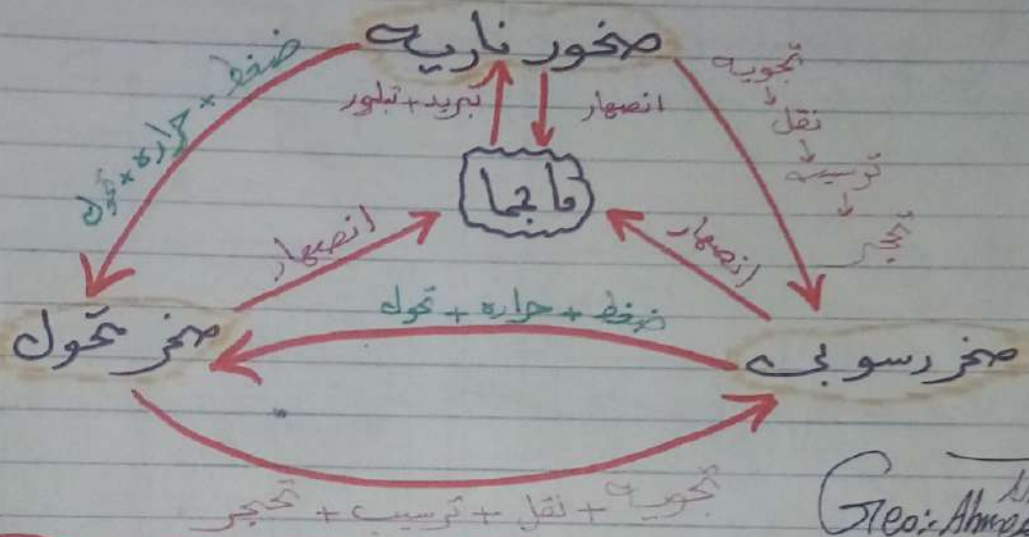 صخور ناريه
ضغط + حراره + تحول
تبريد + تبلور
انصهار
تجويه
نقل
ترسيب
تحجر
ماجما
انصهار
انصهار
ضغط + حراره + تحول
صخر تحول
صخر رسوبى
تجويه + نقل + ترسيب + تحجر
Geo: Ahmed